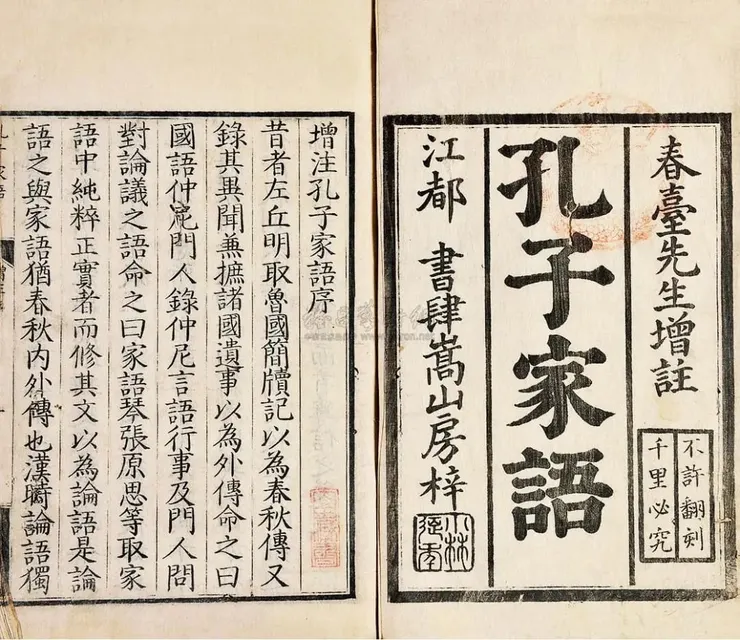 春臺先生增註
不許翻刻
千里必究
孔子家語
江都 書肆嵩山房梓
增注孔子家語序
昔者左丘明取魯國簡牘記以為春秋傳又
錄其異聞兼摭諸國遺事以為外傳命之曰
國語仲尼門人錄仲尼言語行事及門人問
對論議之語命之曰家語琴張原思等取家
語中純粹正實者而修其文以為論語是論
語之與家語猶春秋内外傳也漢時論語獨